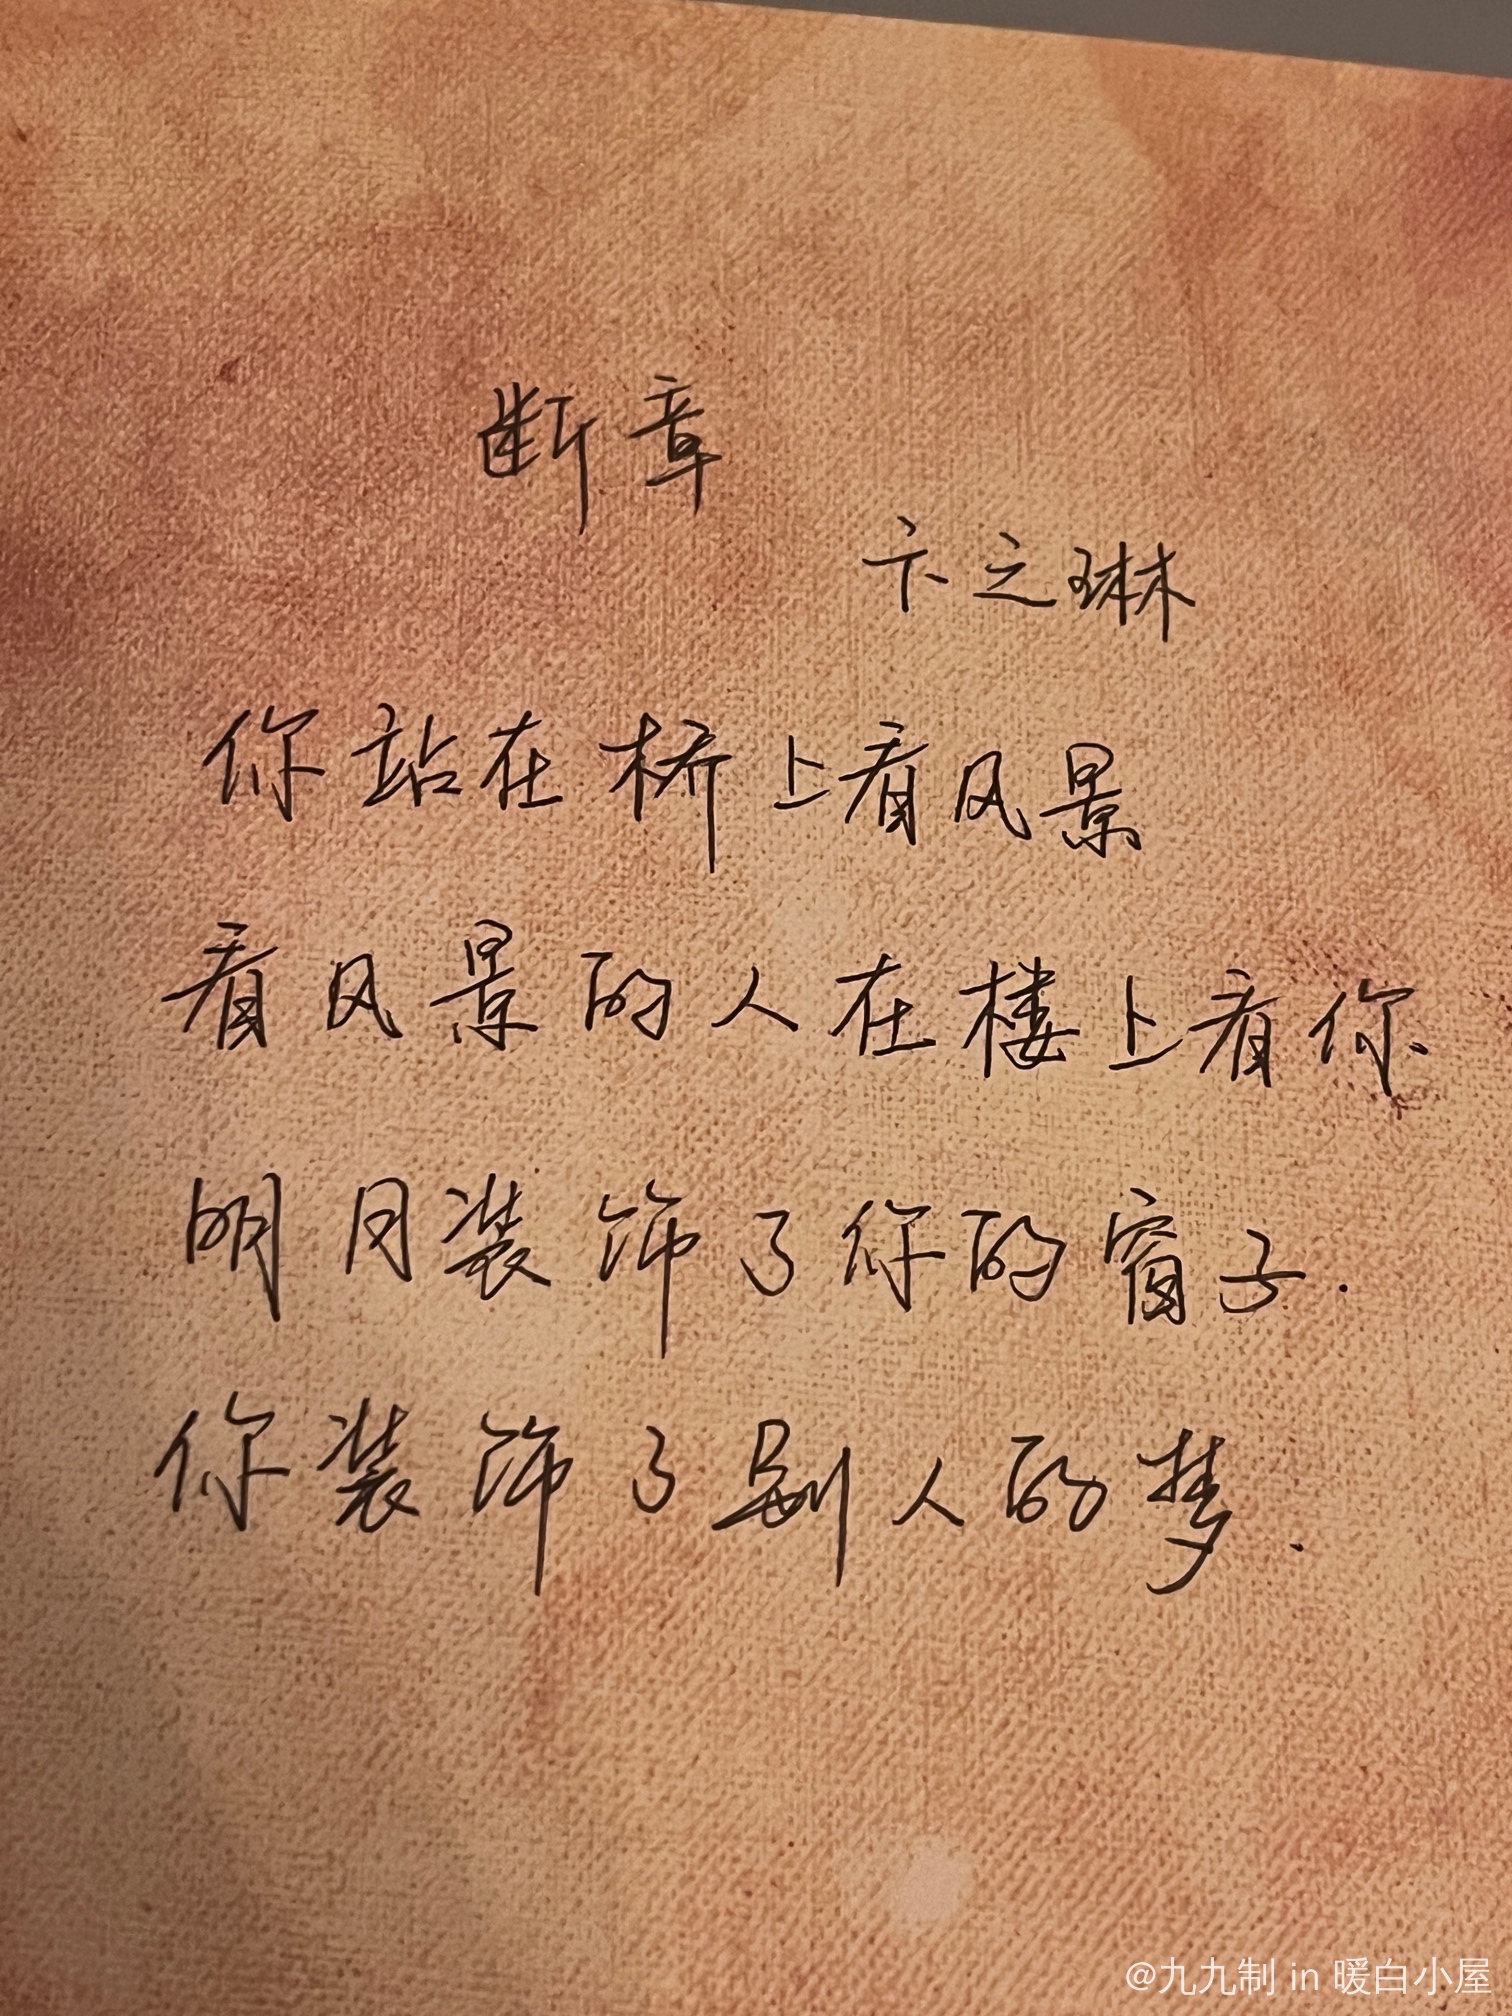 断章
卞之琳
你站在桥上看风景
看风景的人在楼上看你
明月装饰了你的窗子.
你装饰了别人的梦.
@九九制 in 暖白小屋